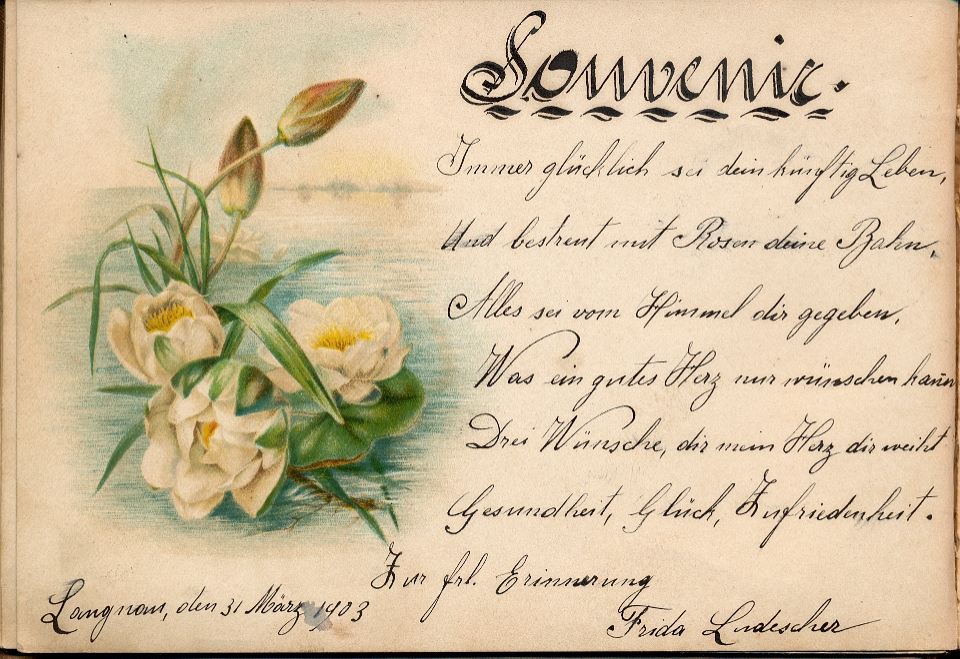 Souvenir.
Immer glücklich sei dein künftig Leben,
Und bestreut mit Rosen deine Bahn,
Alles sei vom Himmel dir gegeben,
Was ein gutes Herz nur wünschen kann
Drei Wünsche, dir mein Herz dir weiht
Gesundheit, Glück, Zufriedenheit.
Zur frl. Erinnerung
Langnau, den 31 März 1903
Frida Ludescher